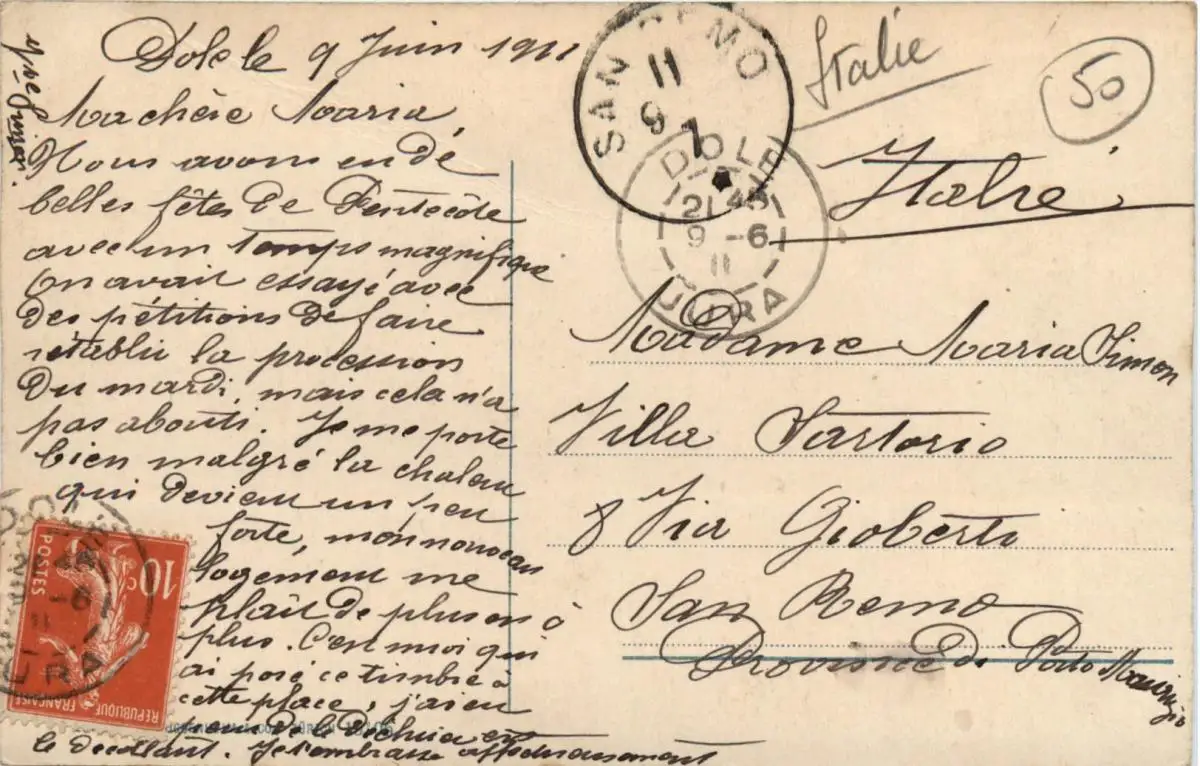 Dole le 9 Juin 1911
Ma chère Maria,
Nous avons eu de
belles fêtes de Pentecôte
avec un temps magnifique
On avait essayé avec
des pétitions de faire
rétablir la procession
du mardi, mais cela n'a
pas abouti. Je me porte
bien malgré la chaleur
qui devient un peu
forte, mon nouveau
logement me
plaît de plus en
plus. C'est moi qui
ai posé ce timbre à
cette place, j'ai eu
peur de le déchirer en
le décollant. Je t'embrasse affectueusement
SAN REMO
11
9 7
DOLE
21 45
9 -6
11
JURA
Italie
50
Italie
Madame Maria Simon
Villa Sartorio
8 Via Gioberto
San Remo
Province de Porto Maurizio
10 c
POSTES
RÉPUBLIQUE FRANÇAISE